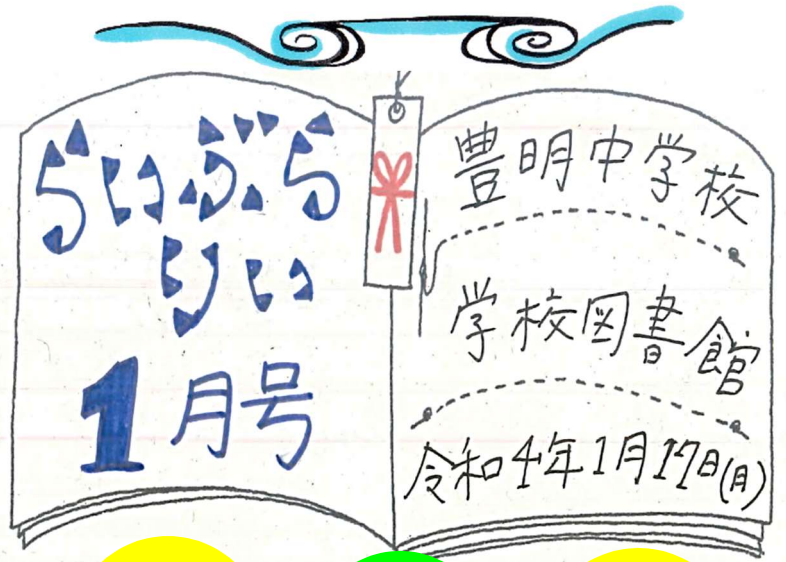 らいぶら
りい
1月号
豊明中学校
学校図書館
令和4年1月17日(月)